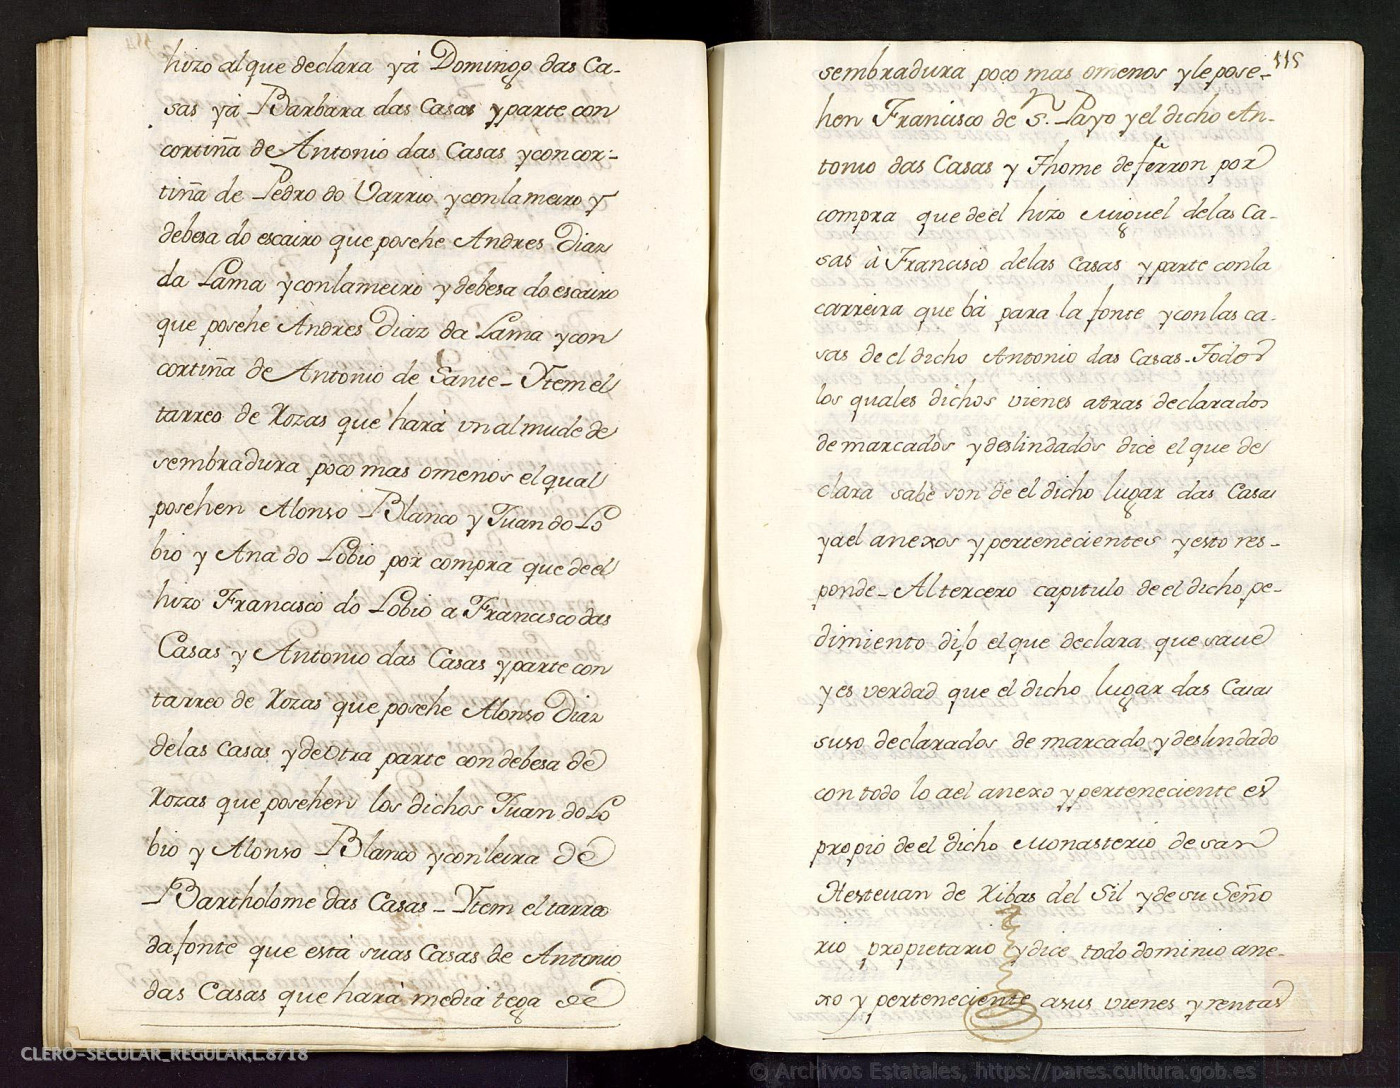 hizo alque declara yà Domingo das Ca-
sas yà Barbara das Casas yparte con
cortiña de Antonio das Casas yconcor-
tiña de Pedro do Varrio yconlameiro y
debesa do escairo que posehe Andres Diaz
da Lama yconlameiro ydebesa do escairo
que posehe Andres Diaz da Lama ycon
cortiña de Antonio de Sante - Ytem el
tarreo de Rozas que harà vn almude de
sembradura poco mas omenos el qual
posehen Alonso Blanco y Juan do Lo
bio y Ana do Lobio por compra que de el
hizo Francisco do Lobio a Francisco das
Casas y Antonio das Casas yparte con
tarreo de Rozas que posehe Alonso Diaz
delas Casas ydeOtra parte con debesa de
Rozas que posehen los dichos Juan do Lo
bio y Alonso Blanco yconleira de
Bartholome das Casas - Ytem el tarreo
da fonte que està suas Casas de Antonio
das Casas que harà media tega de
115
sembradura poco mas omenos yle pose-
hen Francisco de S.n Payo yel dicho An-
tonio das Casas y Thome de ferron por
compra que deèl hizo Miguel delas Ca-
sas à Francisco delas Casas yparte conla
carreira que bà para la fonte yconlas ca-
sas de el dicho Antonio das Casas - Todos
los quales dichos vienes atras declarados
demarcados ydeslindados dice el que de
clara sabe son de el dicho lugar das Casas
yael anexos ypertenecientes yesto res-
ponde - Altercero capitulo de el dicho pe-
dimiento dijo elque declara que saue
yes verdad que el dicho lugar das Casas
suso declarados demarcado ydeslindado
contodo lo ael anexo yperteneciente es
propio deel dicho Monasterio de san
Hesteuan de Ribas del Sil ydesu Seño
rio propietario ydice todo dominio ane-
xo y perteneciente asus vienes yrentas
CLERO-SECULAR_REGULAR,L.8718
© Archivos Estatales, https://pares.cultura.gob.es
ARCHIVOS
ESTATALES